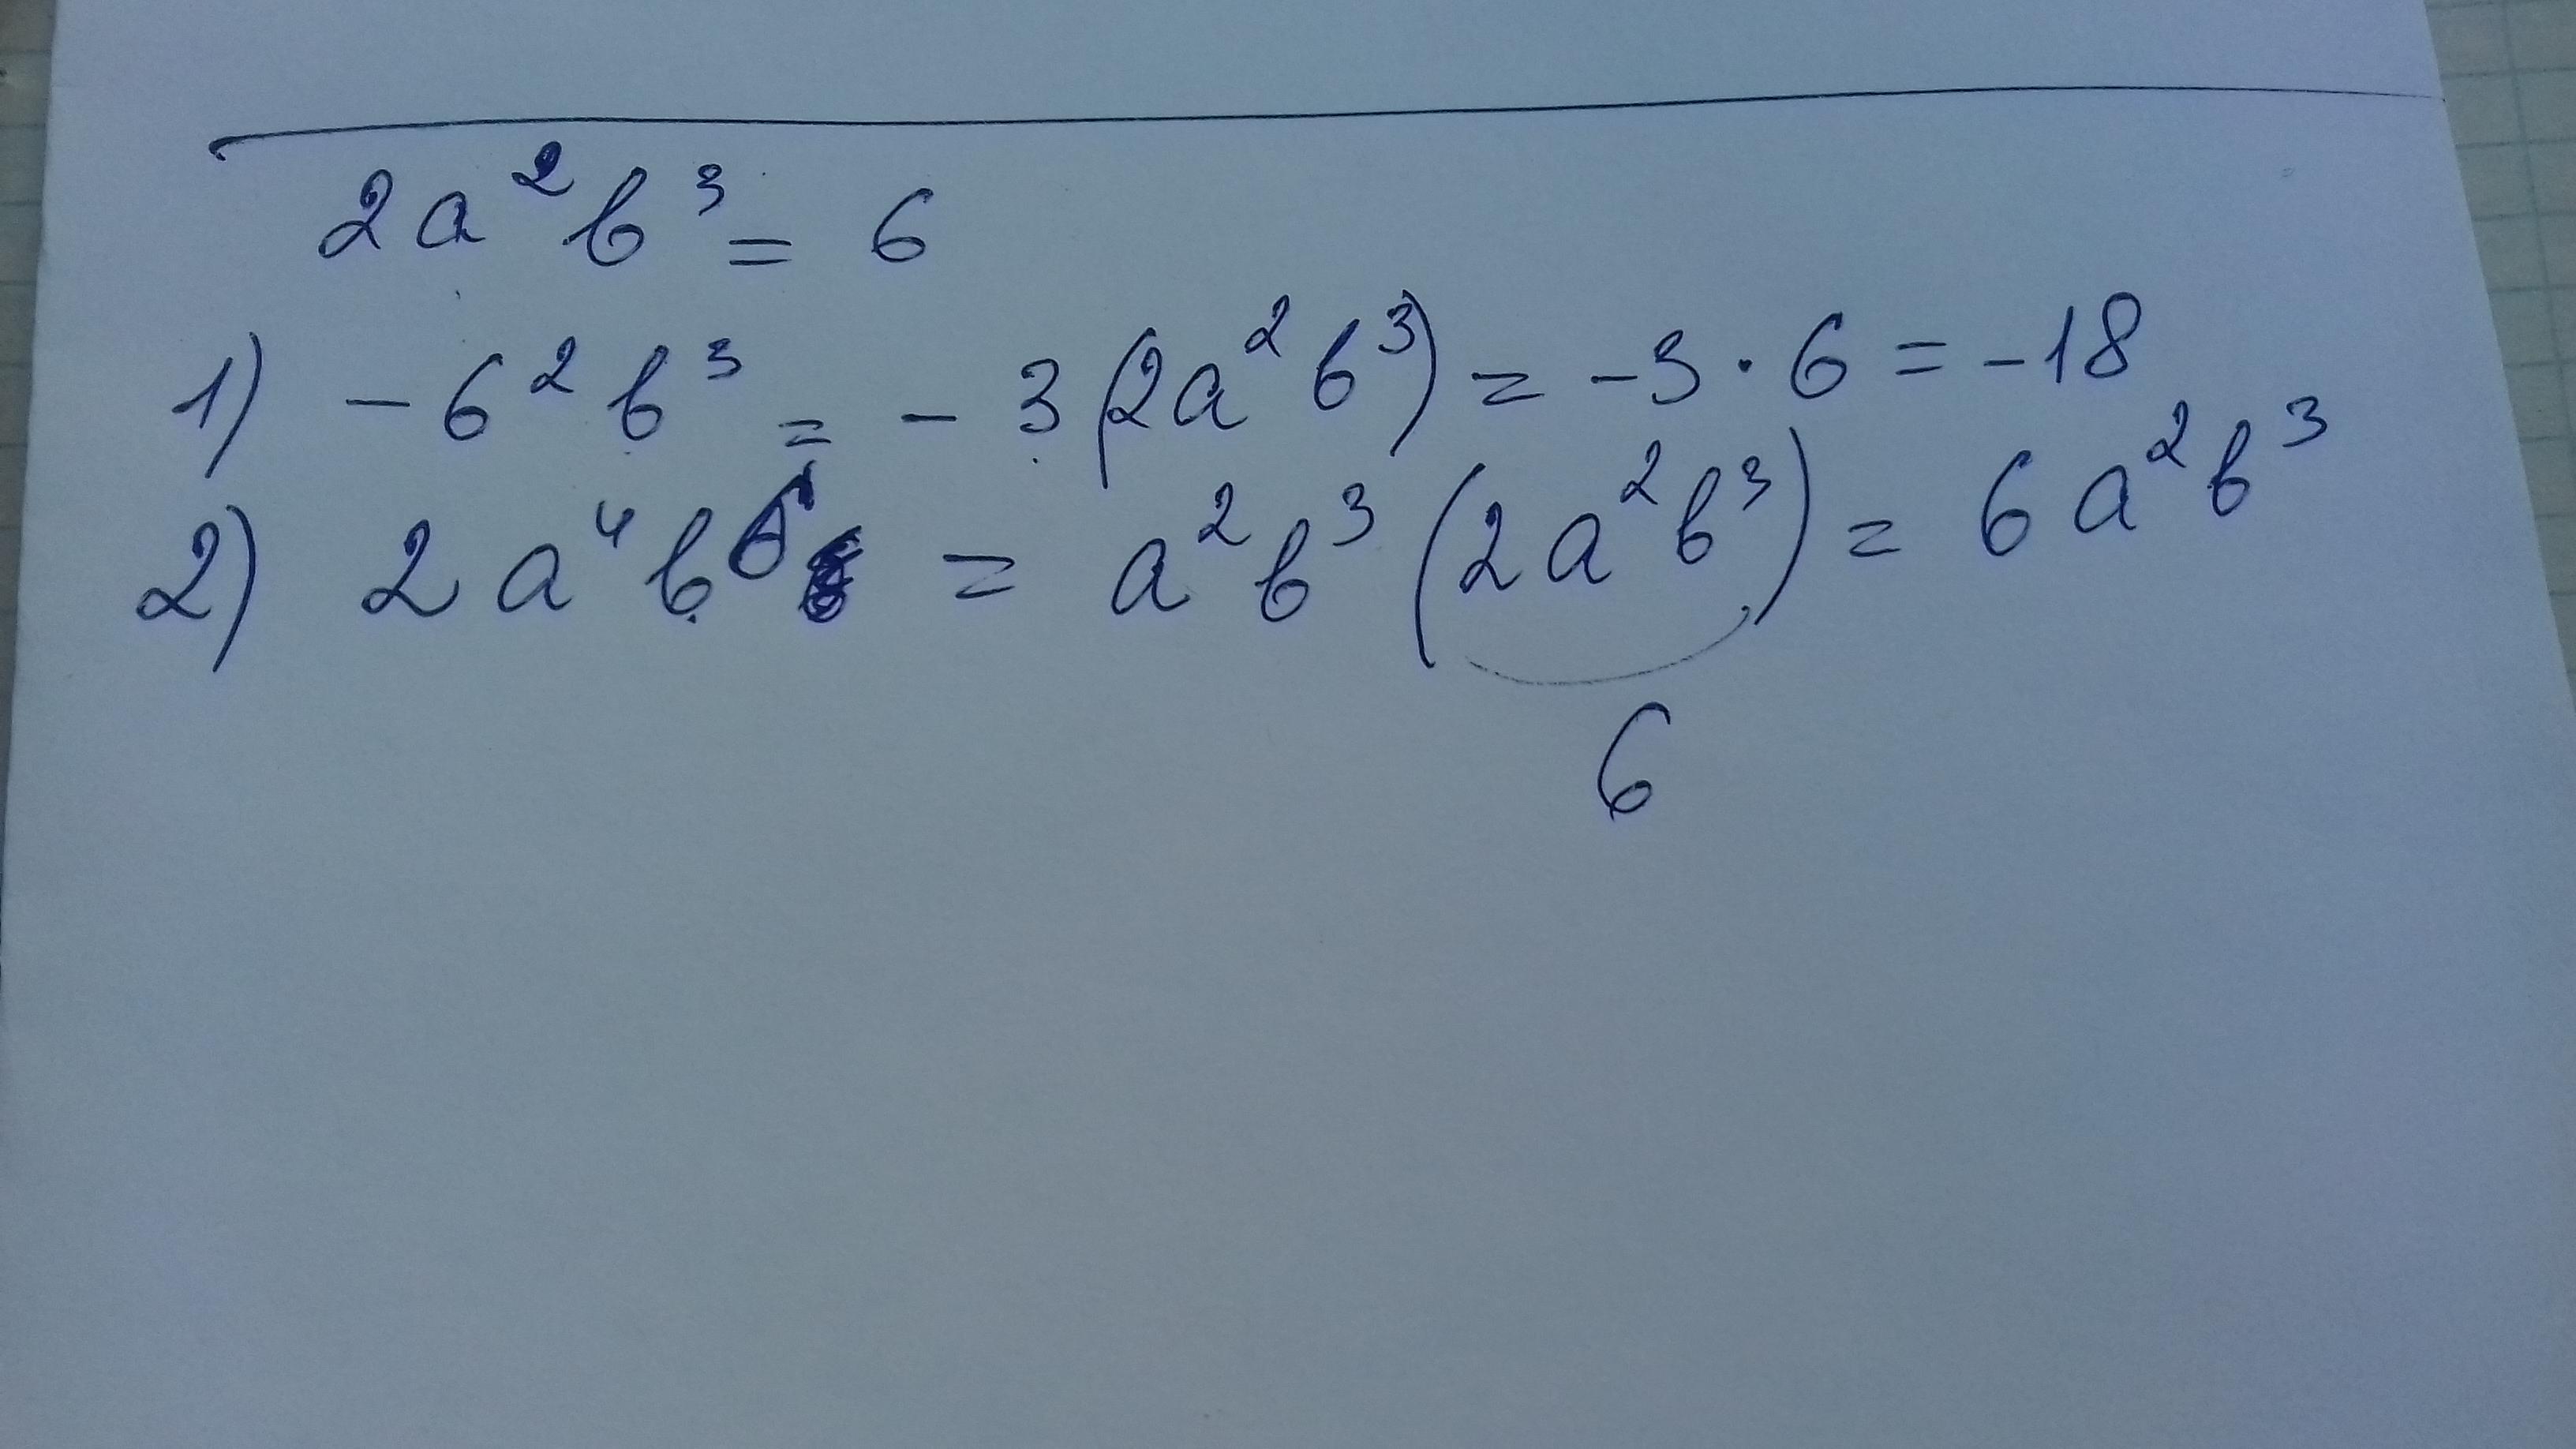 2a²b³ = 6
1) -6²b³ = -3(2a²b³) = -3·6 = -18
2) 2a⁴b⁶ = a²b³(2a²b³) = 6a²b³
6